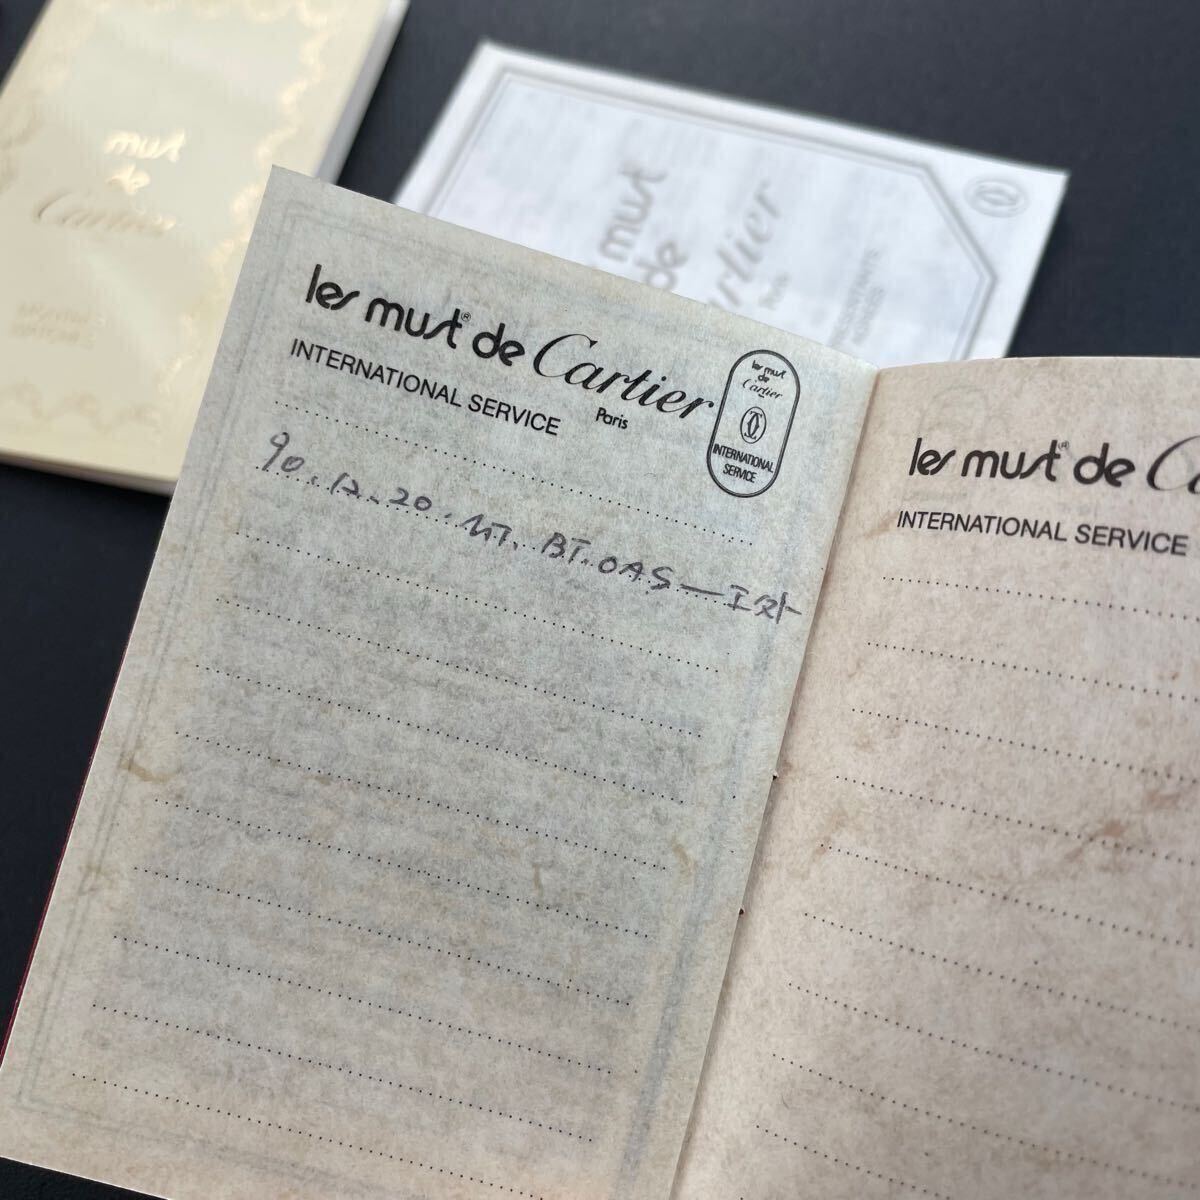 must
de
Cartier
must
de
Cartier
Paris
les must® de Cartier
Paris
INTERNATIONAL SERVICE
les must
de
Cartier
INTERNATIONAL
SERVICE
90.12.20. BT.OAS—
les must® de
INTERNATIONAL SERVICE